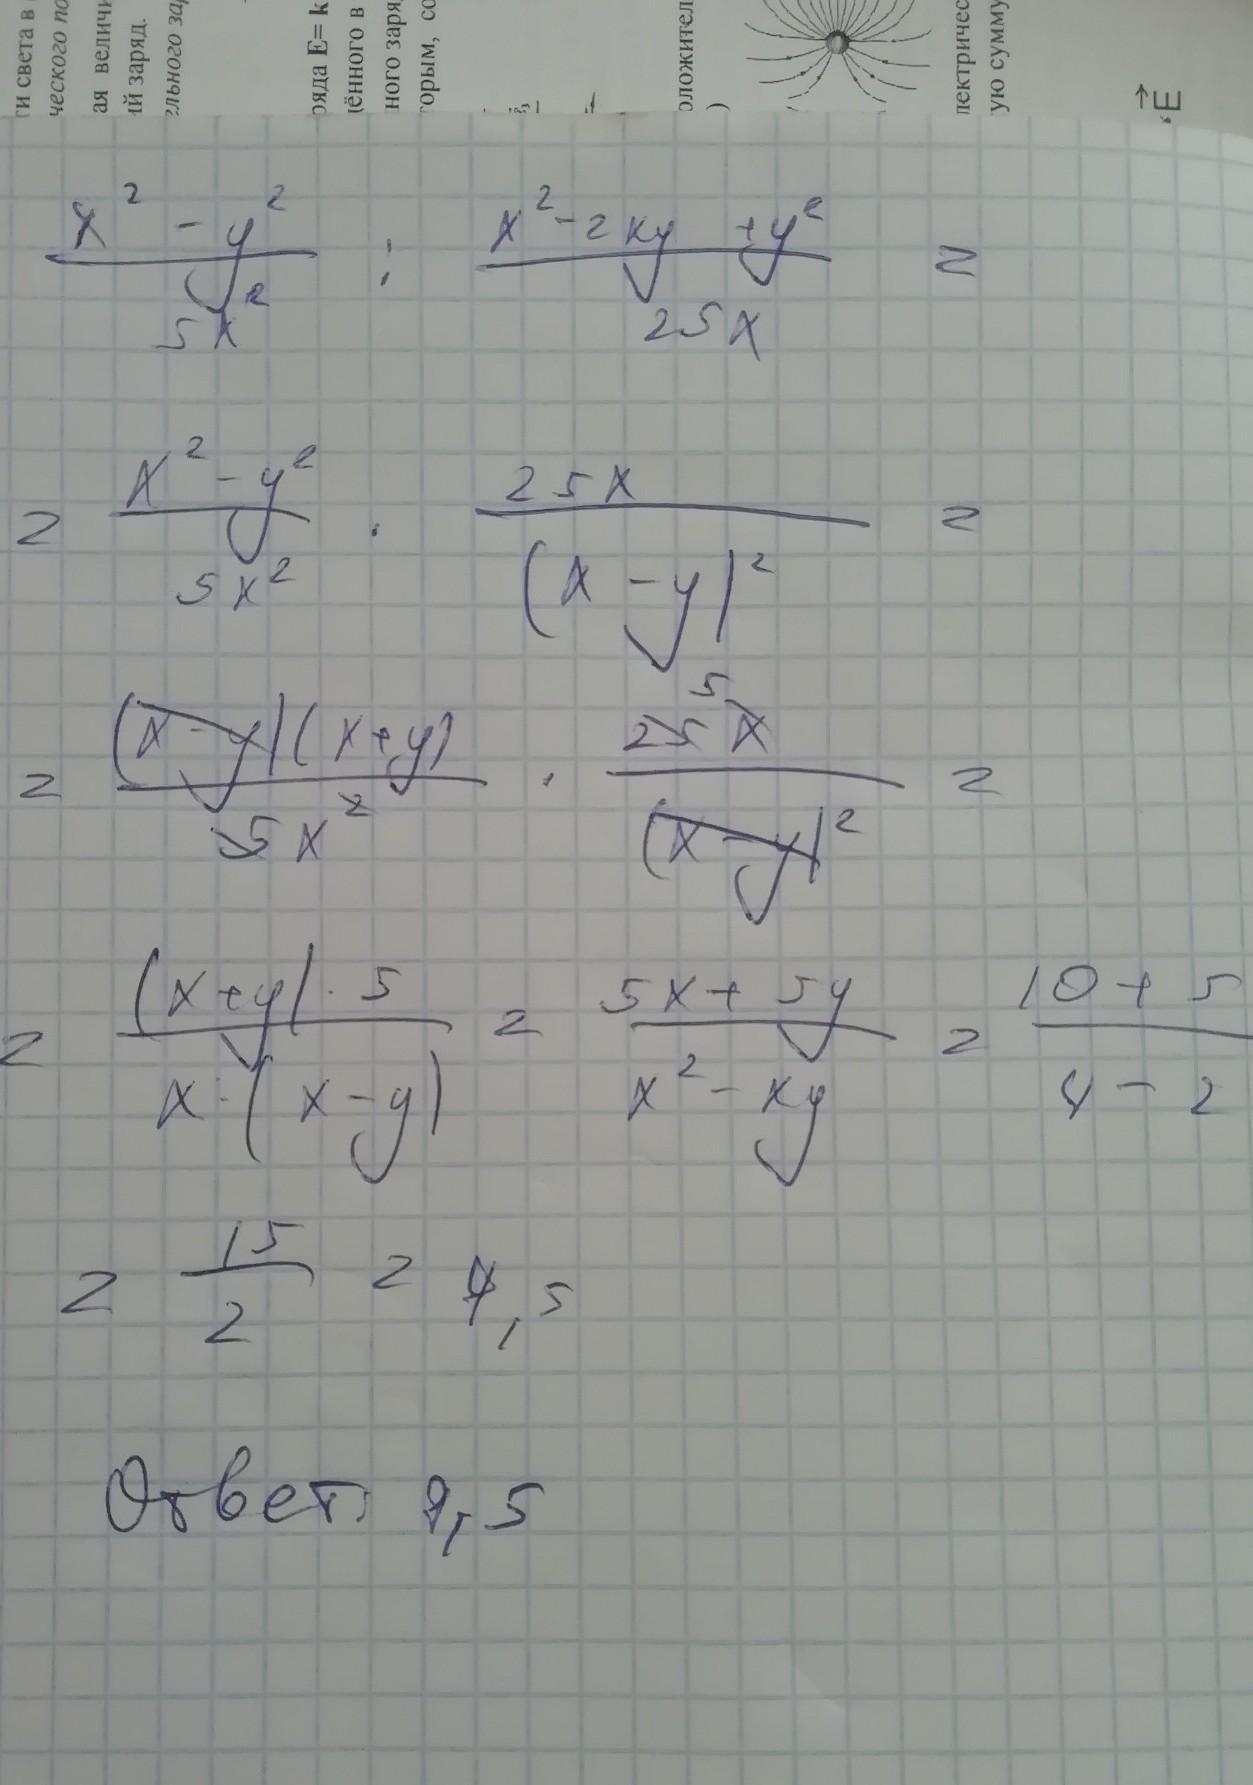 ти света в
ческого по
ая величи
ий заряд.
ельного зар
ряда E= k
ённого в
ного заря
орым, со
оложител
)
лектричес
ую сумму
E
x² - y² : x² - 2xy + y² =
5x² 25x
= x² - y² · 25x =
5x² (x - y)²
5
= (x - y)(x + y) · 25x =
5x² (x - y)²
= (x + y) · 5 = 5x + 5y = 10 + 5
x · (x - y) x² - xy 4 - 2
= 15 = 7,5
2
Ответ: 7,5